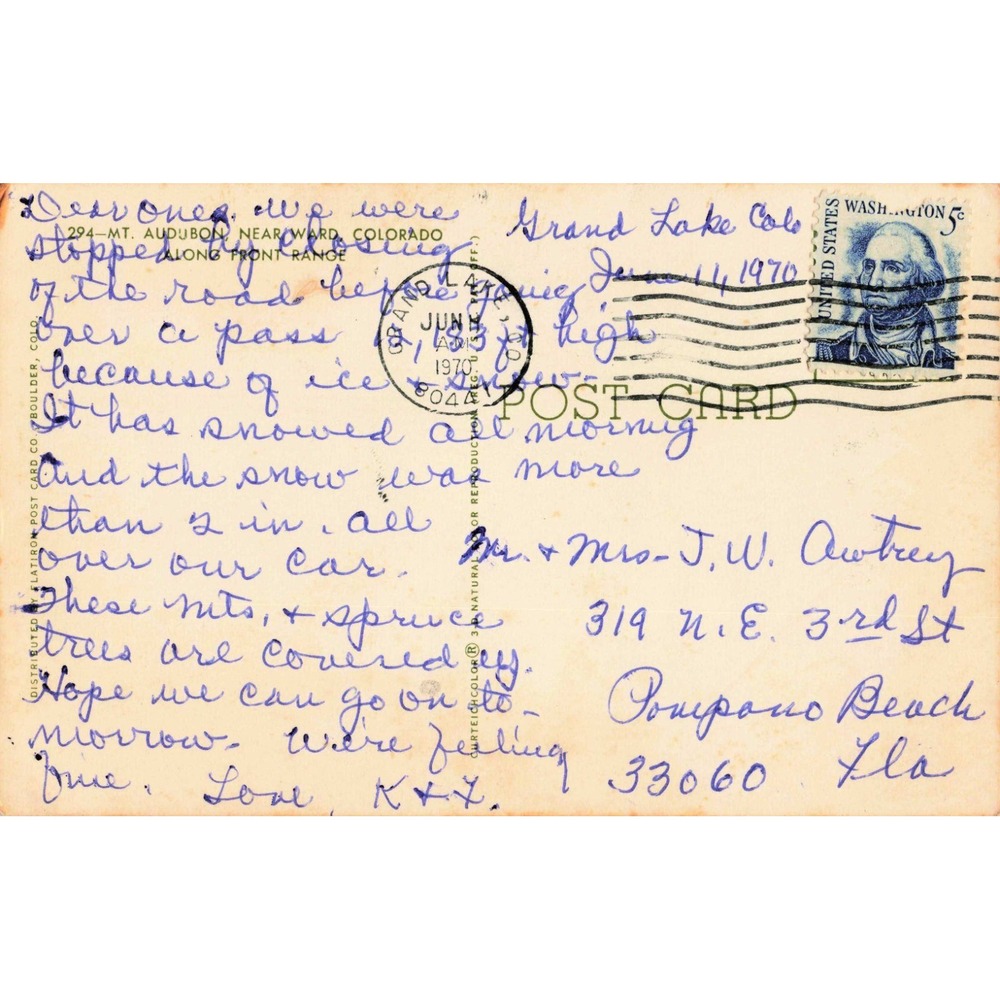 Grand Lake Colo
June 11, 1970
Dear ones. We were
stopped by closing
of the road before going
over a pass 12,183 ft high
because of ice + snow-
It has snowed all morning
and the snow was more
than 2 in. all
over our car.
These mts, + spruce
trees are covered up.
Hope we can go on to-
morrow. We're feeling
fine. Love K + F.
Mr. + Mrs- J. W. Awtrey
319 N. E. 3rd St
Pompano Beach
33060 Fla
294—MT. AUDUBON, NEAR WARD, COLORADO
ALONG FRONT RANGE
POST CARD
GRAND LAKE, CO
JUN
AM
1970
8044
UNITED STATES
WASHINGTON 5c
DISTRIBUTED BY FLATIRON POST CARD CO., BOULDER, COLO.
CURTEICHCOLOR® 3-D NATURAL COLOR REPRODUCTION (REG. U.S.A. PAT. OFF.)